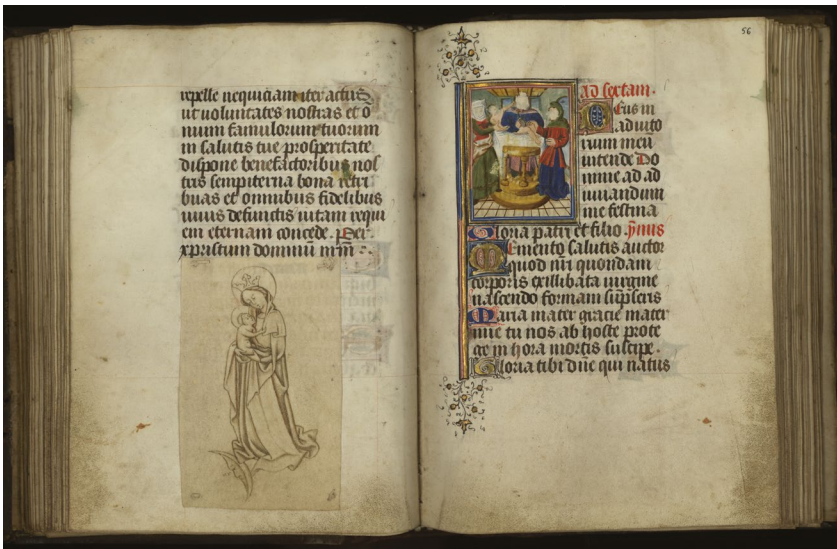 repelle nequiciam iter actus
ut uoluntates nostras et o
nium famulorum tuorum
in salutis tue prosperitate
dispone benefactoribus nos
tris sempiterna bona retri
buas et omnibus fidelibus
uiuis defunctis uitam requi
em eternam concede. Per
xpristum dominū nr̄m
56
ad sextam.
Deus in
adiuto
rium meū
intende Do
mine ad ad
iuuandum
me festina
Gloria patri et filio. ym̄us
Memento salutis auctor
quod nr̄i quondam
corporis ex illibata uirgine
nascendo formam sūpseris
Maria mater gracie mater
mie tu nos ab hoste prote
ge in hora mortis suscipe.
Gloria tibi dn̄e qui natus